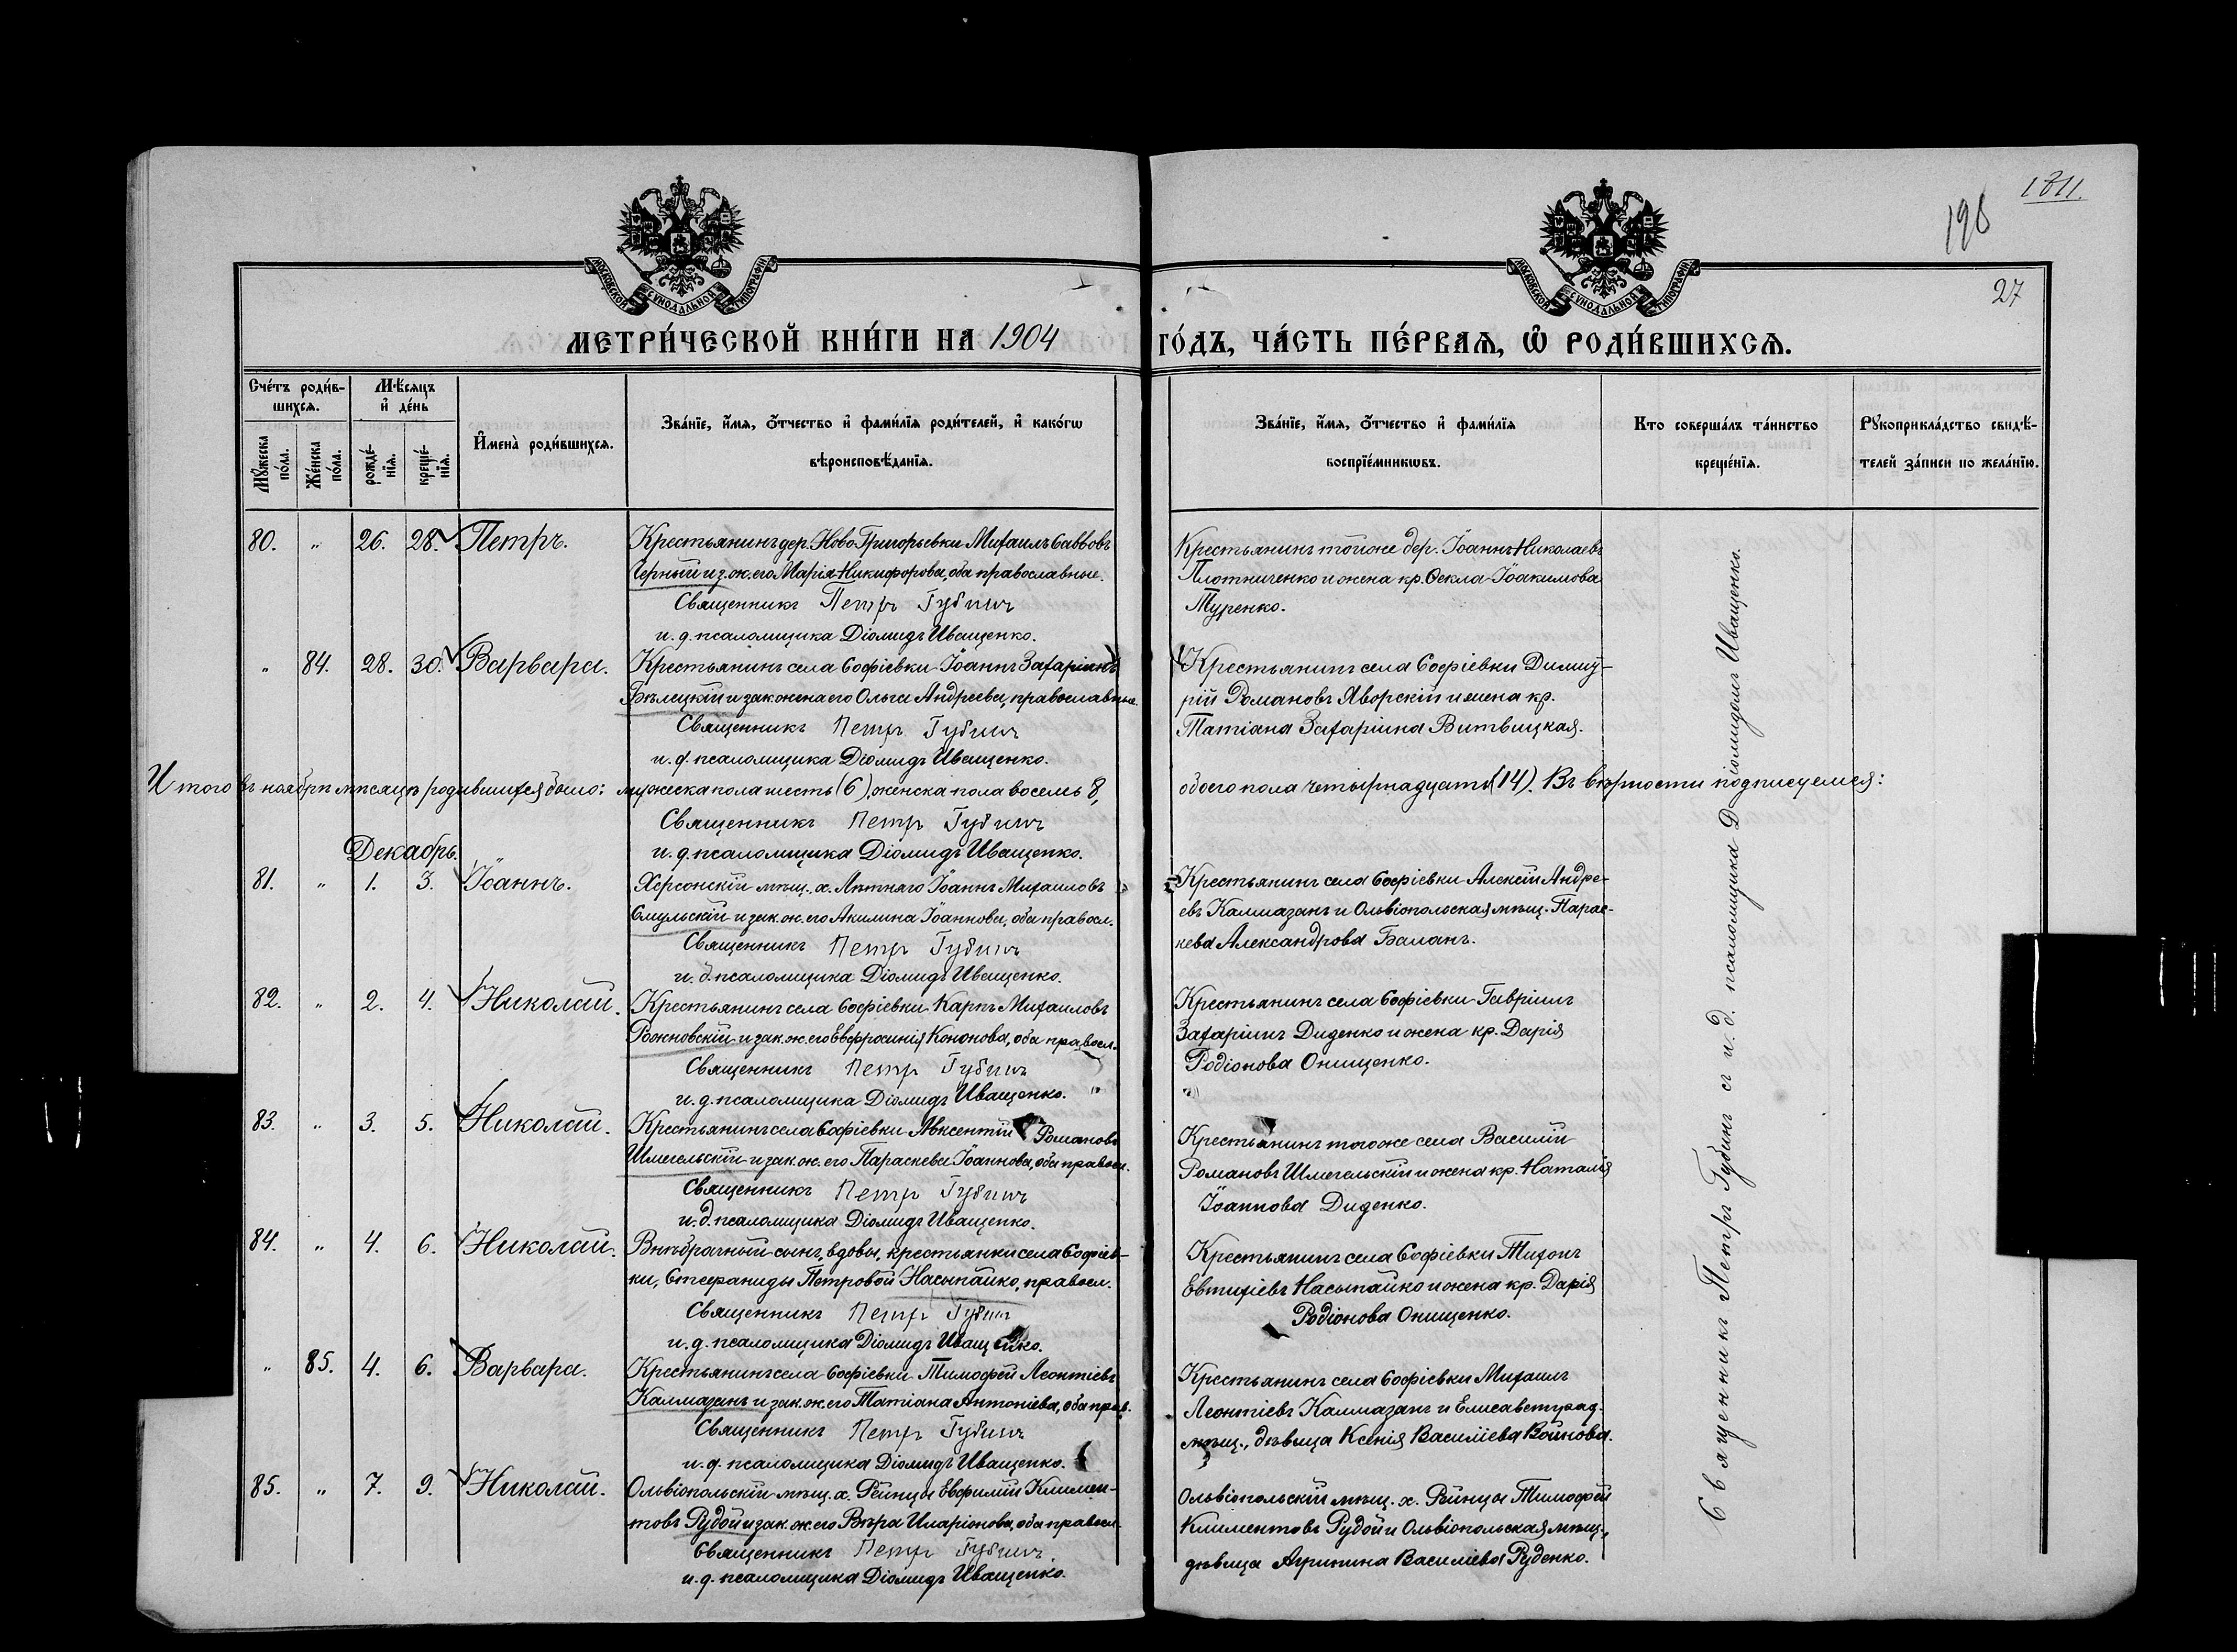 1811.
198
27
МОСКОВСКОЙ СѴНОДАЛЬНОЙ ТИПОГРАФІИ
МОСКОВСКОЙ СѴНОДАЛЬНОЙ ТИПОГРАФІИ
МЕТРИ́ЧЕСКОЙ КНИ́ГИ НА 1904 ГО́ДЪ, ЧА́СТЬ ПЕ́РВАѦ, Ѡ҆ РОДИ́ВШИХСѦ.
Сче́тъ роди́в-
шихсѧ.
Мѣ́сѧцъ
и҆ де́нь
Мꙋ́жеска по́ла.
Же́нска по́ла.
рожде́-
нїѧ.
креще́-
нїѧ.
И҆мена̀ роди́вшихсѧ.
Зва́нїе, и҆́мѧ, ѻ҆́тчество и҆ фами́лїѧ роди́телей, и҆ како́гѡ
вѣроисповѣ́данїѧ.
Зва́нїе, и҆́мѧ, ѻ҆́тчество и҆ фами́лїѧ
воспрїе́мникѡвъ.
Кто соверша́лъ та́инство
креще́нїѧ.
Рꙋкоприкла́дство свидѣ́-
телей за́писи по жела́нїю.
80. „ 26. 28. Петръ.
Крестьянинъ дер. Ново-Григорьевки Михаилъ Саввовъ
Черный и з. ж. его Марія Никифорова, оба православные.
Священникъ Петръ Губинъ
и. д. псаломщика Діомидъ Иващенко.
Крестьянинъ тойже дер. Іоаннъ Николаевъ
Плотниченко и жена кр. Ѳекла Іоакимова
Туренко.
„ 84. 28. 30. Варвара.
Крестьянинъ села Софіевки Іоаннъ Захаріинъ
Бѣлецкій и зак. жена его Ольга Андреева, православные.
Священникъ Петръ Губинъ
и. д. псаломщика Діомидъ Иващенко.
Крестьянинъ села Софіевки Димит-
рій Романовъ Яворскій и жена кр.
Татіана Захаріина Витвицкая.
Итого въ ноябрѣ мѣсяцѣ родившихся было: мужеска пола шесть (6), женска пола восемь 8, обоего пола четырнадцать (14). Въ вѣрности подписуемся:
Священникъ Петръ Губинъ
и. д. псаломщика Діомидъ Иващенко.
Декабрь.
81. „ 1. 3. Іоаннъ.
Херсонскій мѣщ. х. Лѣтняго Іоаннъ Михаиловъ
Смульскій и зак. ж. его Акилина Іоаннова, оба правосл.
Священникъ Петръ Губинъ
и. д. псаломщика Діомидъ Иващенко.
Крестьянинъ села Софіевки Алексій Андре-
евъ Калмазанъ и Ольвіопольская мѣщ. Парас-
кева Александрова Баланъ.
82. „ 2. 4. Николай.
Крестьянинъ села Софіевки Карпъ Михаиловъ
Рожновскій и зак. ж. его Евфросинія Кононова, оба правосл.
Священникъ Петръ Губинъ
и. д. псаломщика Діомидъ Иващенко.
Крестьянинъ села Софіевки Гавріилъ
Захаріинъ Диденко и жена кр. Дарія
Родіонова Онищенко.
83. „ 3. 5. Николай.
Крестьянинъ села Софіевки Авксентій Романовъ
Шмегельскій и зак. ж. его Параскева Іоаннова, оба правосл.
Священникъ Петръ Губинъ
и. д. псаломщика Діомидъ Иващенко.
Крестьянинъ тогоже села Василій
Романовъ Шмегельскій и жена кр. Наталія
Іоаннова Диденко.
84. „ 4. 6. Николай.
Внѣбрачный сынъ, вдовы, крестьянки села Софіев-
ки, Стефаниды Петровой Насыпайко, правосл.
Священникъ Петръ Губинъ
и. д. псаломщика Діомидъ Иващенко.
Крестьянинъ села Софіевки Тихонъ
Евтихіевъ Насыпайко и жена кр. Дарія
Родіонова Онищенко.
„ 85. 4. 6. Варвара.
Крестьянинъ села Софіевки Тимофей Леонтіевъ
Калмазанъ и зак. ж. его Татіана Антоніева, оба прав.
Священникъ Петръ Губинъ
и. д. псаломщика Діомидъ Иващенко.
Крестьянинъ села Софіевки Михаилъ
Леонтіевъ Калмазанъ и Елисаветград.
мѣщ., дѣвица Ксенія Василіева Войнова.
85. „ 7. 9. Николай.
Ольвіопольскій мѣщ. х. Рейнцы Евфимій Климен-
товъ Рудой и зак. ж. его Вѣра Иларіонова, оба правосл.
Священникъ Петръ Губинъ.
и. д. псаломщика Діомидъ Иващенко.
Ольвіопольскій мѣщ. х. Рейнцы Тимофей
Климентовъ Рудой и Ольвіопольская мѣщ.,
дѣвица Агрипина Василіева Руденко.
Священникъ Петръ Губинъ съ и. д. псаломщика Діомидомъ Иващенко.